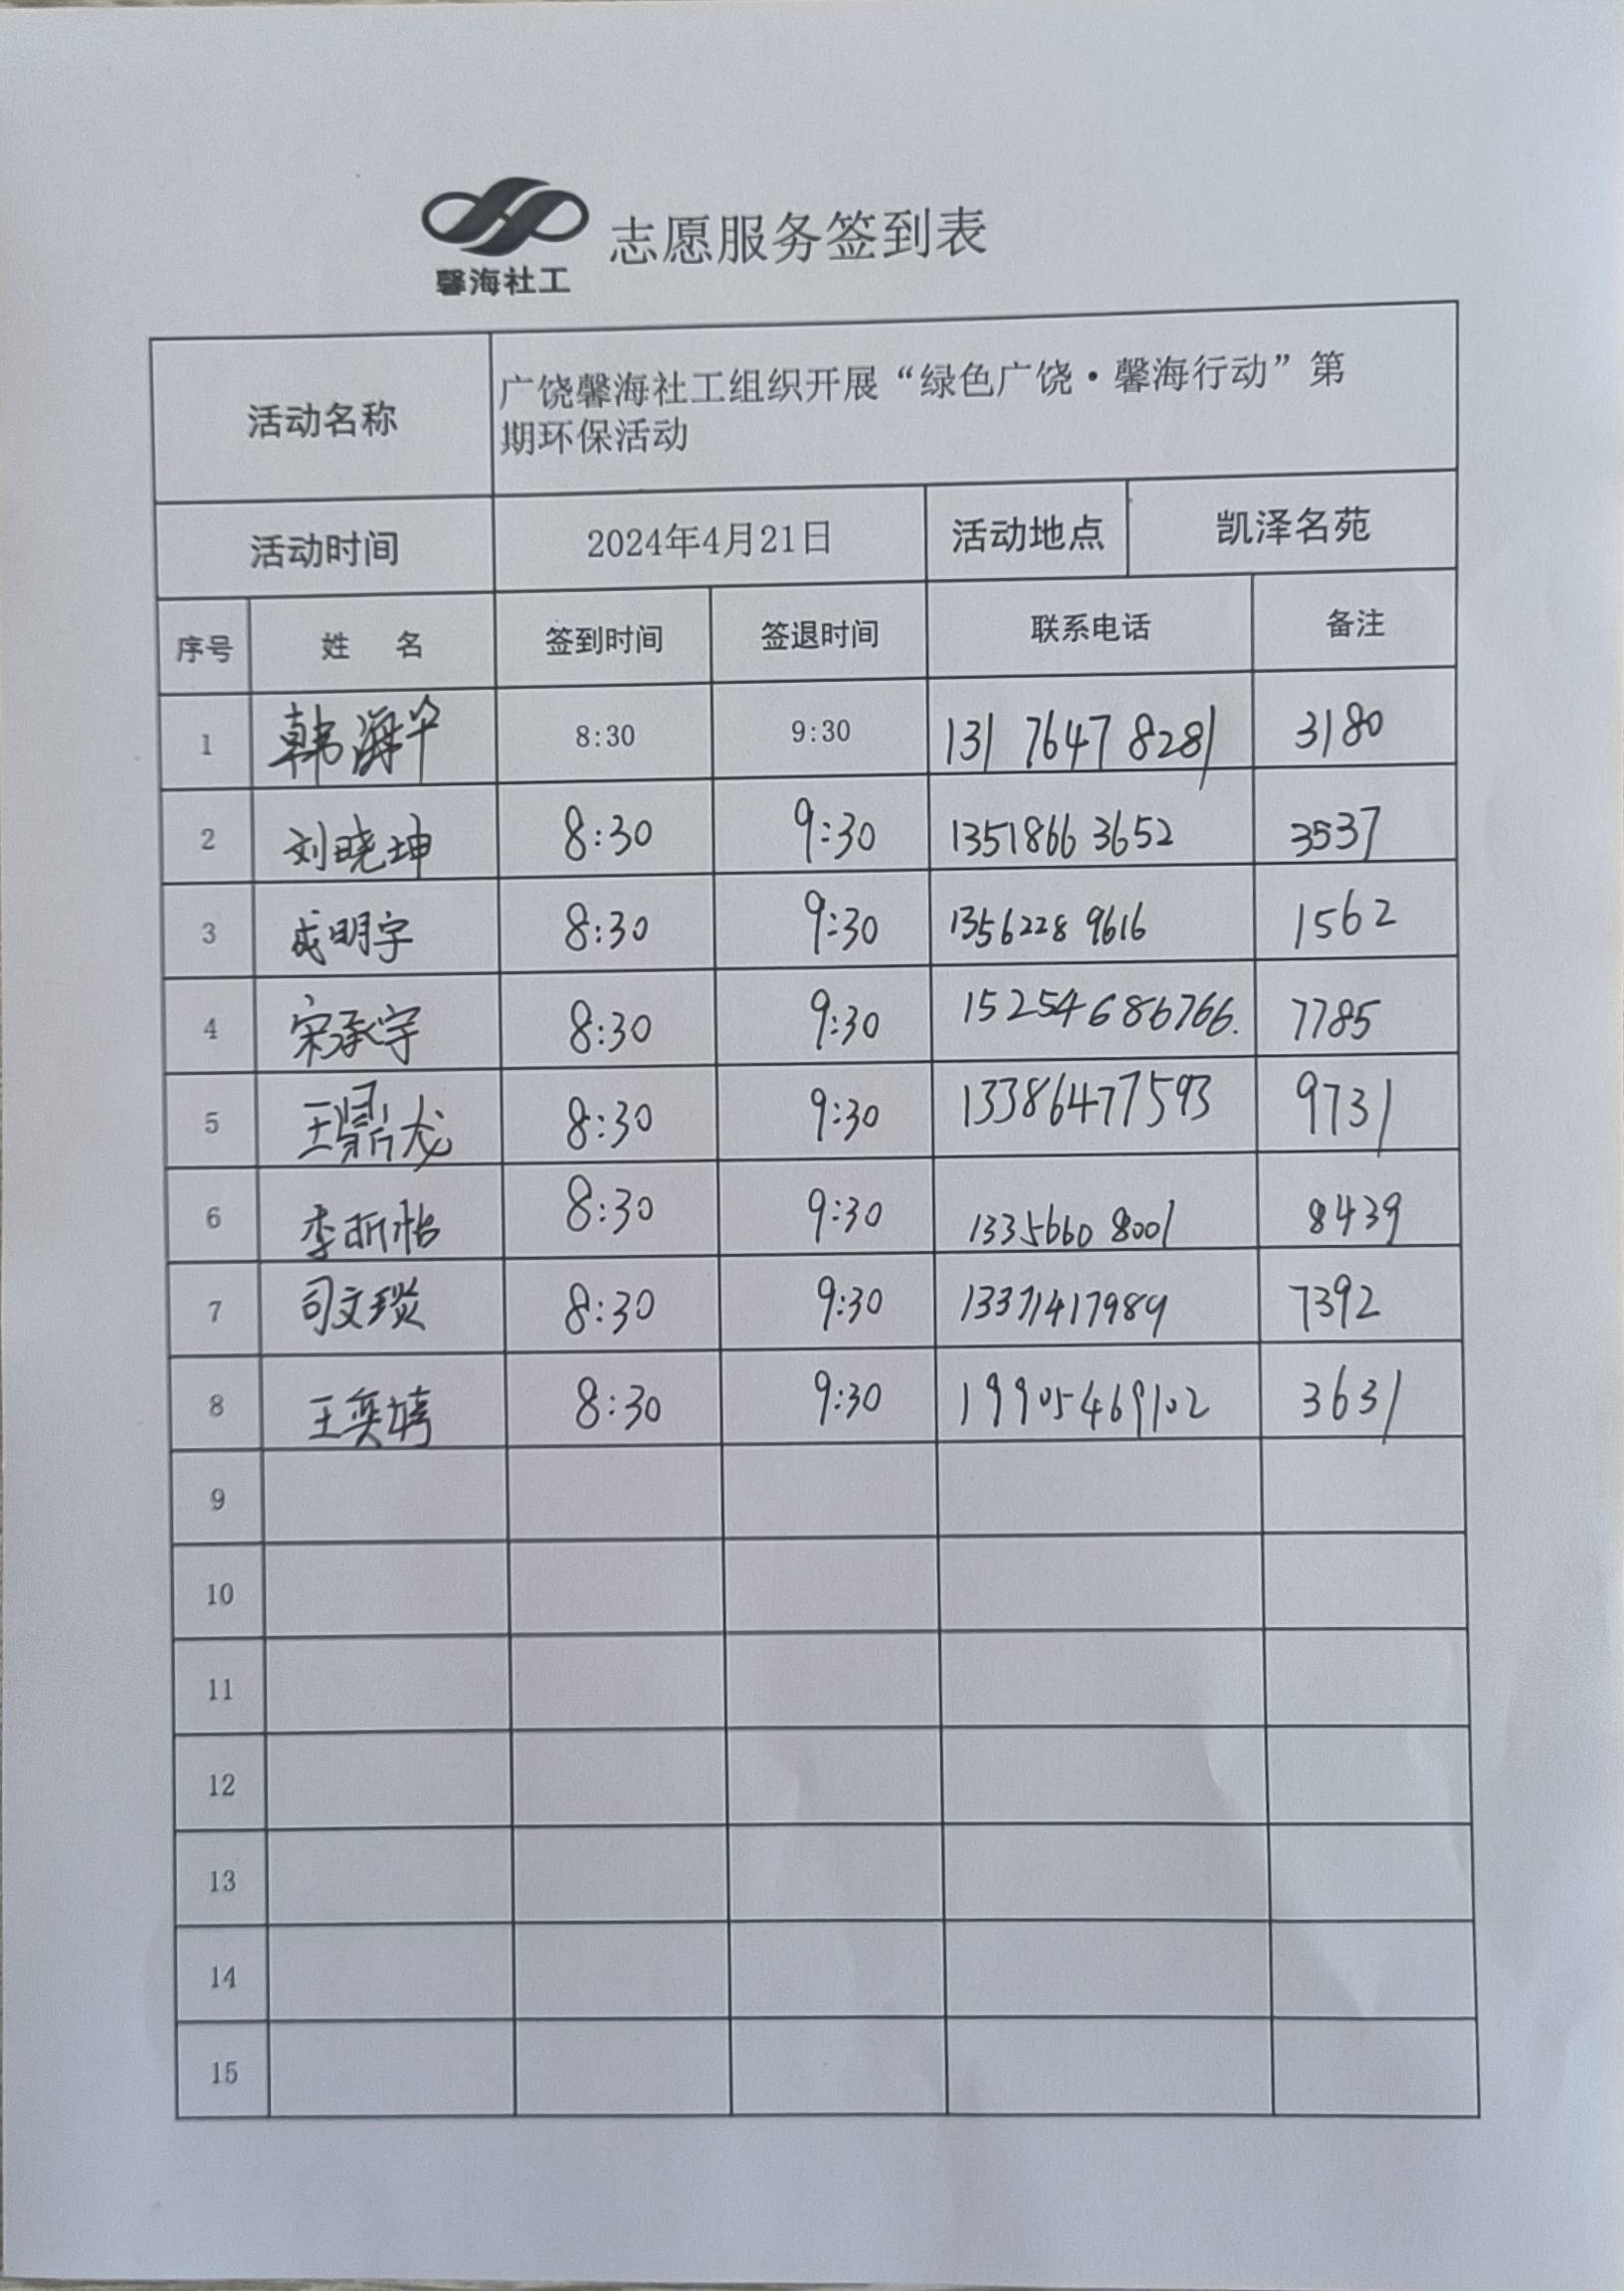 馨海社工
志愿服务签到表
活动名称
广饶馨海社工组织开展“绿色广饶·馨海行动”第
期环保活动
活动时间 2024年4月21日 活动地点 凯泽名苑
序号 姓 名 签到时间 签退时间 联系电话 备注
1 韩海华 8:30 9:30 131 7647 8281 3180
2 刘晓坤 8:30 9:30 1351866 3652 3537
3 成明宇 8:30 9:30 1356228 9616 1562
4 宋承宇 8:30 9:30 15254686766. 7785
5 王鼎龙 8:30 9:30 13386477593 9731
6 李昕怡 8:30 9:30 1335660 8001 8439
7 司文琰 8:30 9:30 13371417989 7392
8 王奕婷 8:30 9:30 19905469102 3631
9
10
11
12
13
14
15